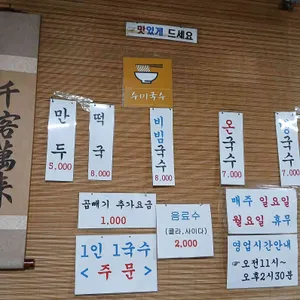 맛있게 드세요
수미국수
千客萬來
만두
5,000
떡국
8,000
비빔국수
8,000
온국수
7,000
냉국수
7,000
곱빼기 추가요금
1,000
음료수
(콜라,사이다)
2,000
1인 1국수
< 주문 >
매주 일요일
월요일 휴무
영업시간안내
☞오전11시~
오후2시30분